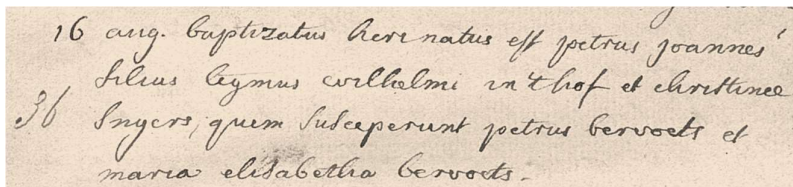 16 aug. baptizatus heri natus est petrus joannes
filius legmus wilhelmi in't hof et christinee
36 Sngers, quem susceperunt petrus bervoets et
maria elisabetha bervoets.